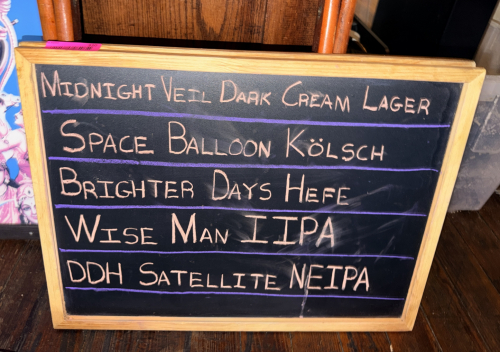 Midnight Veil Dark Cream Lager
Space Balloon Kölsch
Brighter Days Hefe
Wise Man IIPA
DDH Satellite NEIPA